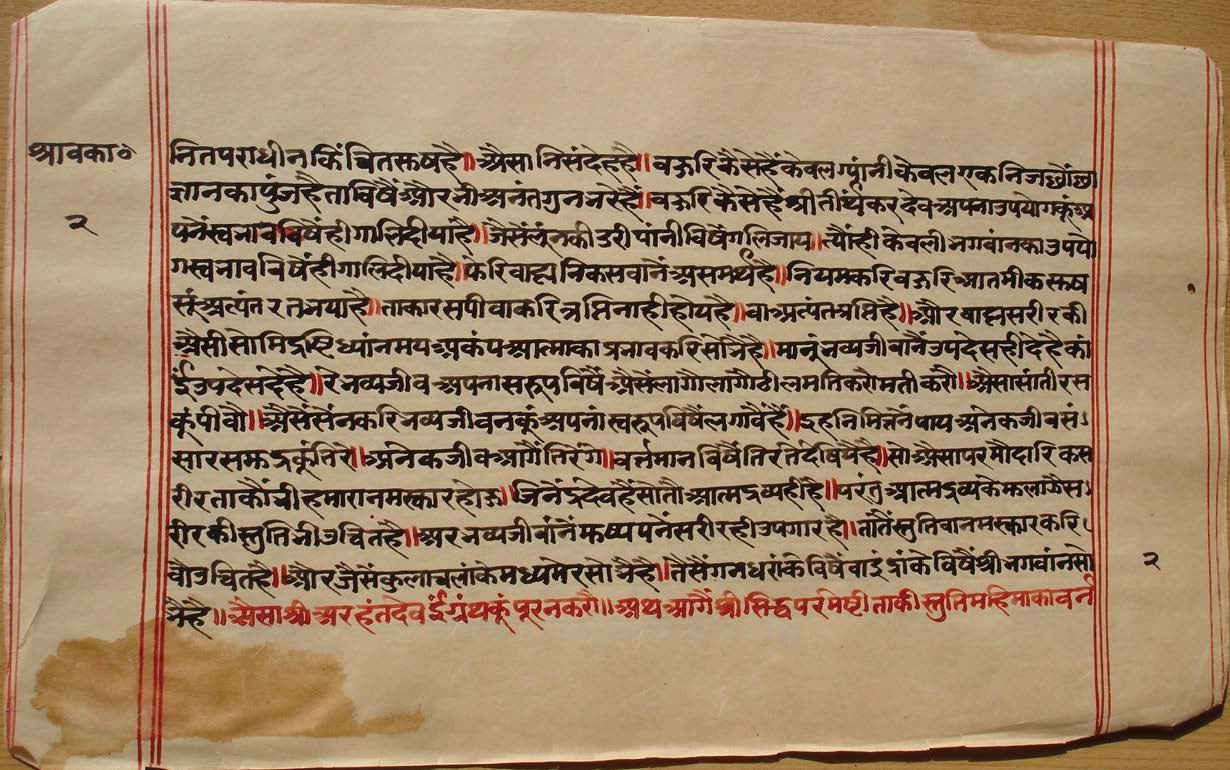 श्रावका॰
२
नितपराधीन किंचित सुष है॥ अैसा निसंदेह है॥ बहुरि कैसे हैं केवलग्यांनी केवल एक निज
ज्ञान का पुंज है ता विषैं और भी अनंत गुन भरे हैं॥ बहुरि कैसे हैं श्री तीर्थंकर देव अपना उपयोग कूं अ
पनें स्वभाव विषैं ही गालि दीया है॥ जैसैं लूंन की डरी पांनी विषैं गलि जाय॥ त्यौंही केवली भगवांन का उपयो
ग स्वभाव विषैंही गालि दीया है॥ फेरि बाह्य निकसवानैं असमर्थ है॥ नियम करि बहुरि आतमीक सुष
सूं अत्यंत रत भया है॥ ताका रस पीवा करि त्रप्ति नाही होय है॥ वा अत्यंत त्रप्ति है॥ और बाह्य सरीर की
अैसी सोमि द्रष्टि ध्यांनमय अकंप आत्मा का प्रभाव करि सोभै है॥ मानूं भव्यजीवानैं उपदेस ही दे है कां
ईं उपदेस दे है॥ रे भव्यजीव अपना सरूप विषैं अैसैं लागौ लागौ ढील मति करौ मती करौ॥ अैसा सांतीरस
कूं पीवौ॥ अैसैं सैंन करि भव्य जीवनकूं अपनां स्वरूप विषैं लगावैं हैं॥ इह निमित्तनैं पाय अनेक जीव सं
सार समुद्र कूं तिरे॥ अनेक जीव आगैं तिरेंगे॥ वर्त्तमान विषैं तिरते दीषिये है॥ सो अैसा परमौदारिक स
रीर ता कौं भी हमारा नमस्कार होहु॥ जिनेंद्रदेव हैं सो तौ आत्मद्रव्य ही है॥ परंतु आत्मद्रव्य के स
रीर की स्तुति भी उचित है॥ अर भव्यजीवांनैं मुष्यपनें सरीर ही उपगार है॥ तातैं स्तुति वा नमस्कार करि
वौ उचित है॥ और जैसैं कुलाचलां के मध्य मेर सोभै है॥ तैसैं गनधरां के विषैं वा इंद्रां के विषैं श्री भगवांन सो
भै है॥ अैसा श्री अरहंत देव ईं ग्रंथ कूं पूरन करौ॥ अथ आगैं श्री सिद्ध परमेष्टी ताकी स्तुति महिमा का वर्न
२